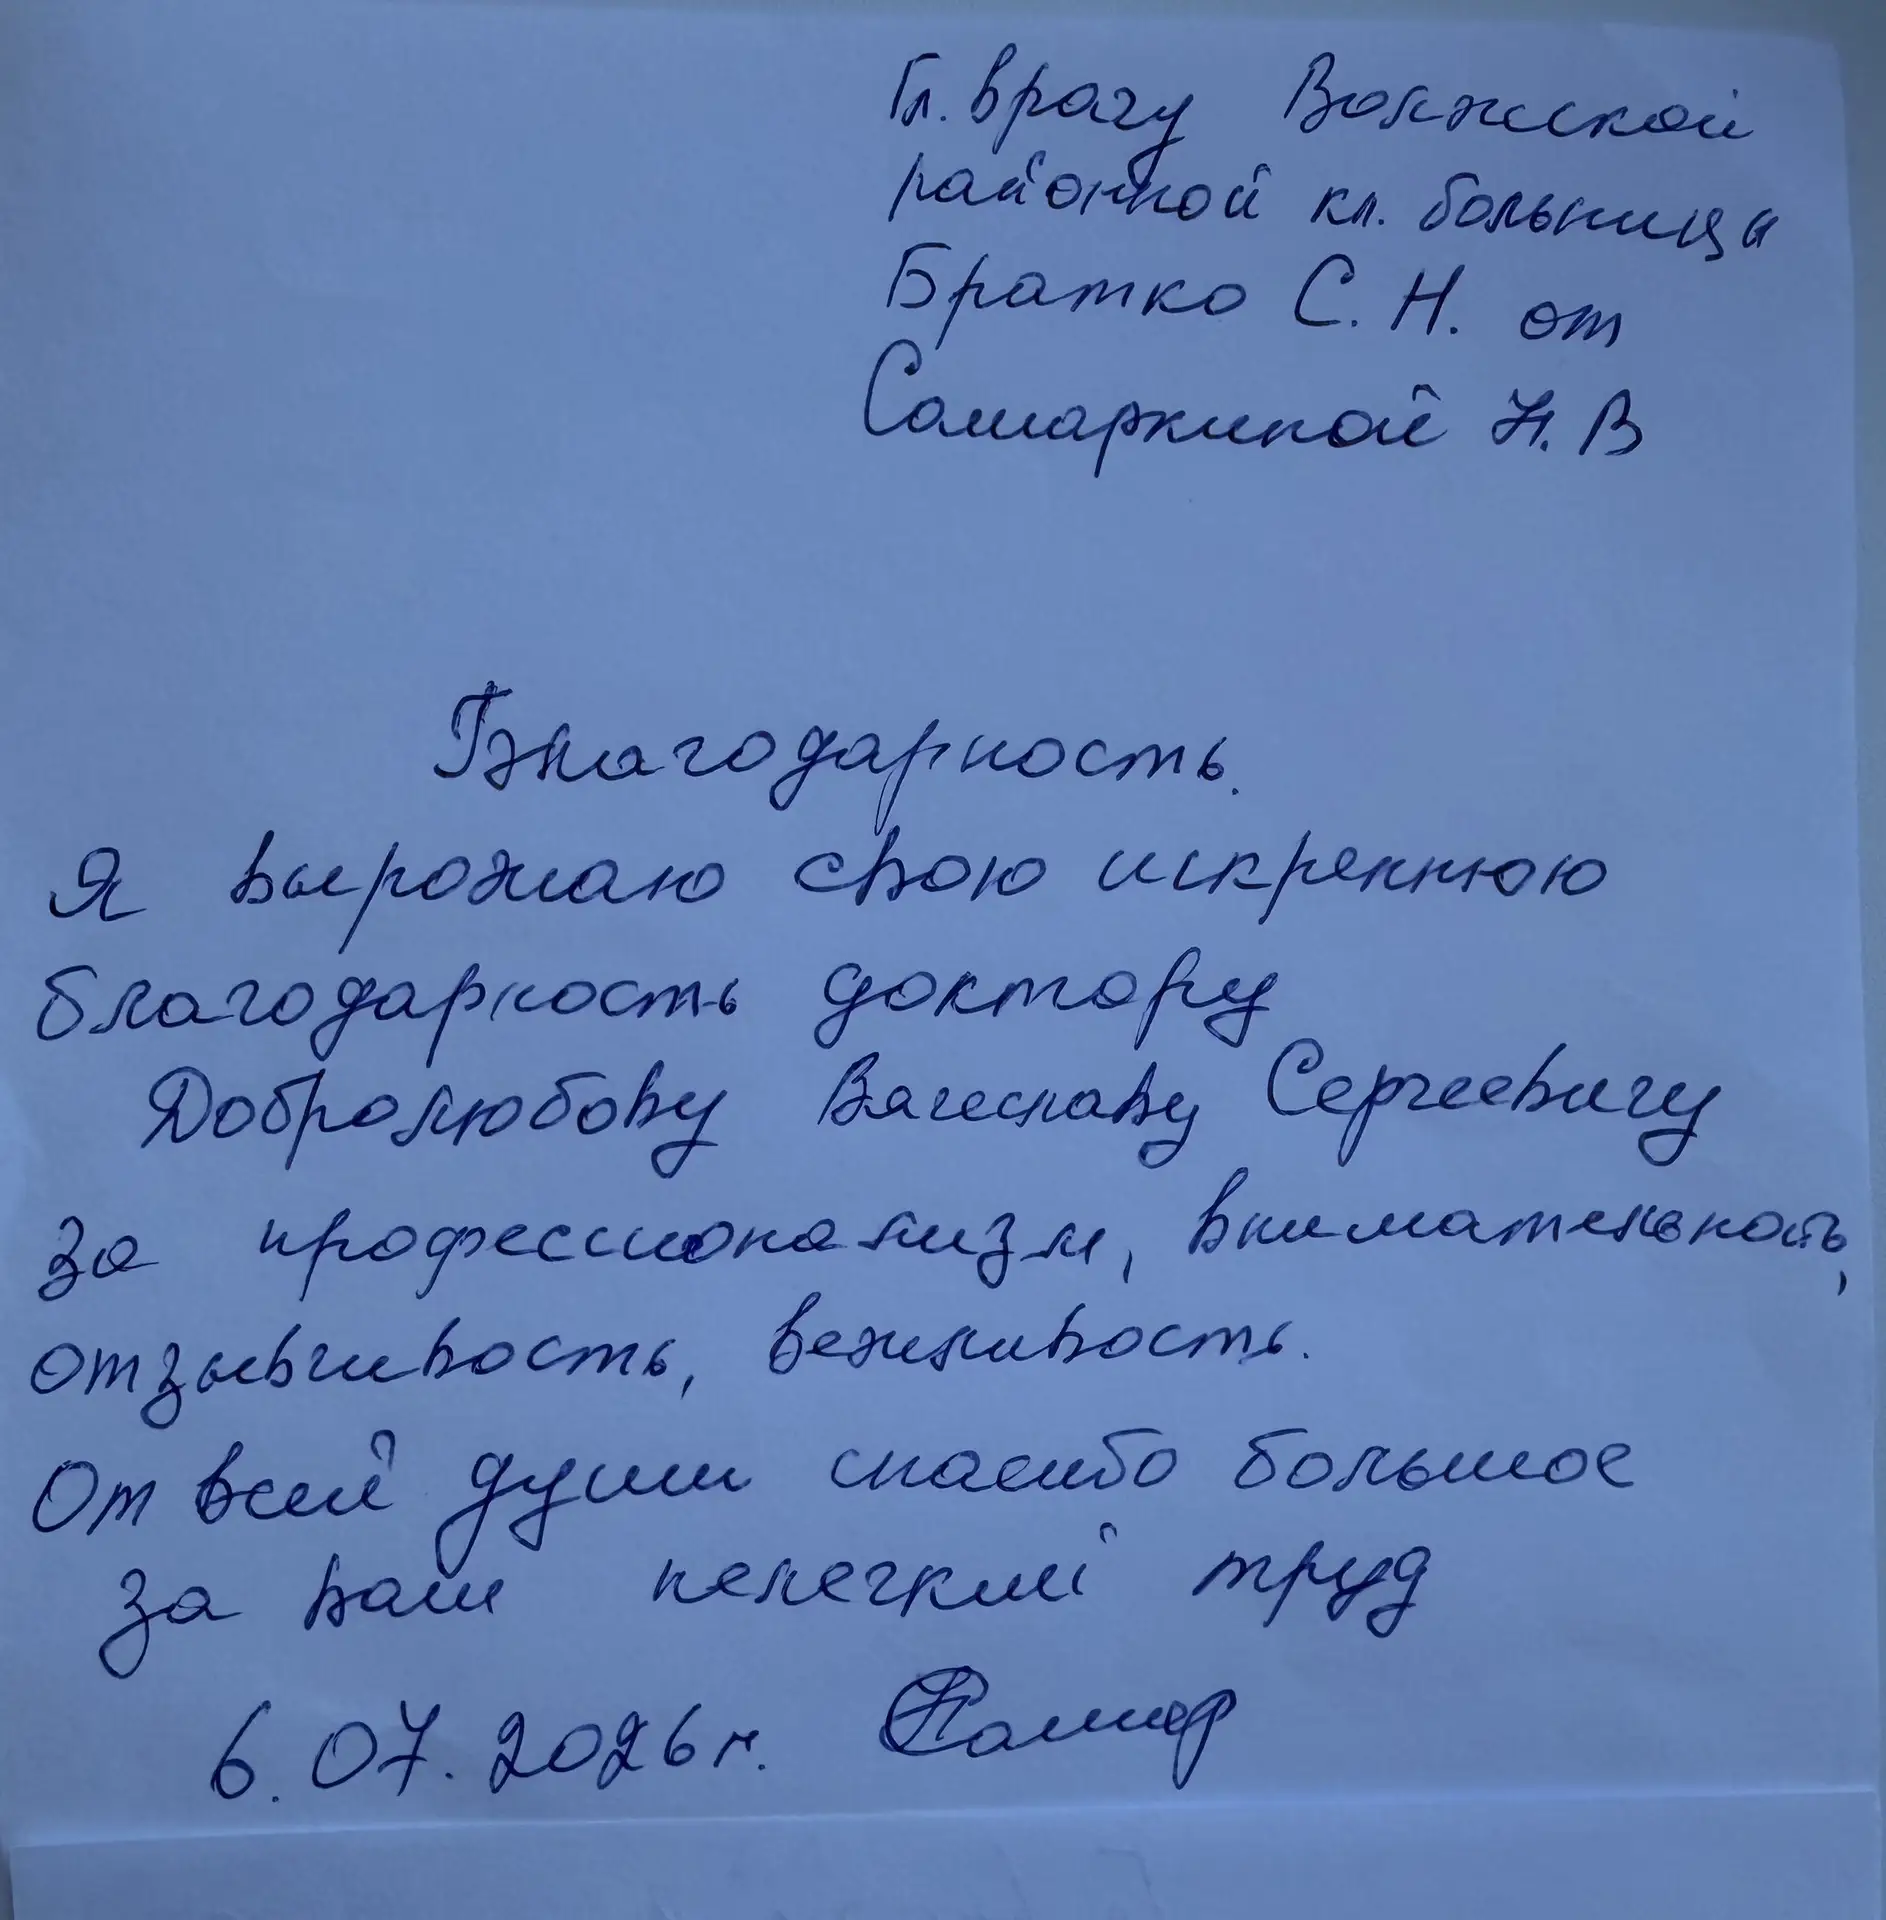 Гл. врачу Волжской
районной кл. больницы
Братко С. Н. от
Самаркиной Н. В
Благодарность.
Я выражаю свою искреннюю
благодарность доктору
Добролюбову Вячеславу Сергеевичу
за профессионализм, внимательность,
отзывчивость, вежливость.
От всей души спасибо большое
за ваш нелегкий труд
6.07.2026 г. Самар